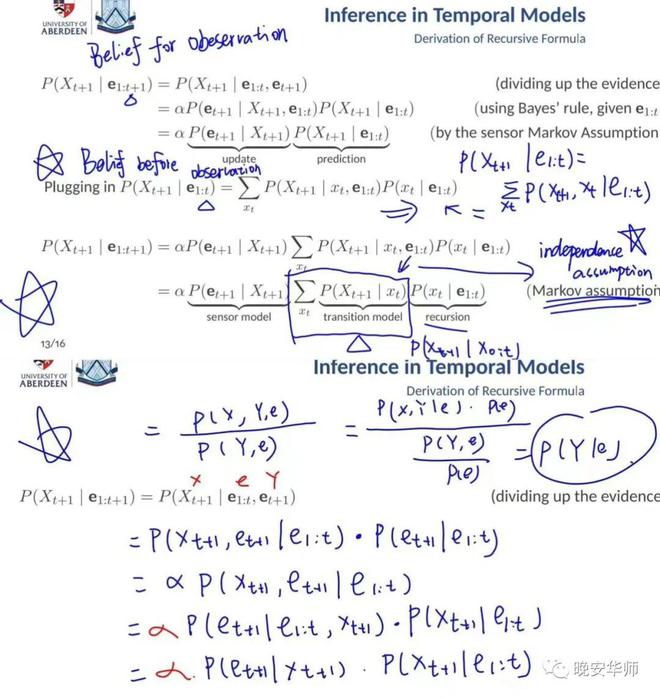 UNIVERSITY OF
ABERDEEN
Inference in Temporal Models
Derivation of Recursive Formula
Belief for obeservation
P(X_{t+1} | e_{1:t+1}) = P(X_{t+1} | e_{1:t}, e_{t+1}) (dividing up the evidence
= αP(e_{t+1} | X_{t+1}, e_{1:t})P(X_{t+1} | e_{1:t}) (using Bayes' rule, given e_{1:t}
= α P(e_{t+1} | X_{t+1}) P(X_{t+1} | e_{1:t}) (by the sensor Markov Assumption
update prediction
☆ Belief before observation
P(X_{t+1} | e_{1:t}) =
Plugging in P(X_{t+1} | e_{1:t}) = ∑_{x_t} P(X_{t+1} | x_t, e_{1:t})P(x_t | e_{1:t})
= ∑_{x_t} P(X_{t+1}, x_t | e_{1:t})
P(X_{t+1} | e_{1:t+1}) = αP(e_{t+1} | X_{t+1}) ∑_{x_t} P(X_{t+1} | x_t, e_{1:t})P(x_t | e_{1:t})
independence
assumption
= α P(e_{t+1} | X_{t+1}) ∑_{x_t} P(X_{t+1} | x_t) P(x_t | e_{1:t}) (Markov assumption)
sensor model transition model recursion
P(X_{t+1} | X_{0:t})
13/16
UNIVERSITY OF
ABERDEEN
Inference in Temporal Models
Derivation of Recursive Formula
= P(X, Y, e) / P(Y, e) = P(X, Y | e) · P(e) / (P(Y, e) / P(e)) = P(Y | e)
x e Y
P(X_{t+1} | e_{1:t+1}) = P(X_{t+1} | e_{1:t}, e_{t+1}) (dividing up the evidence
= P(X_{t+1}, e_{t+1} | e_{1:t}) · P(e_{t+1} | e_{1:t})
= α P(X_{t+1}, e_{t+1} | e_{1:t})
= α P(e_{t+1} | e_{1:t}, X_{t+1}) · P(X_{t+1} | e_{1:t})
= α. P(e_{t+1} | X_{t+1}) · P(X_{t+1} | e_{1:t})
晚安华师